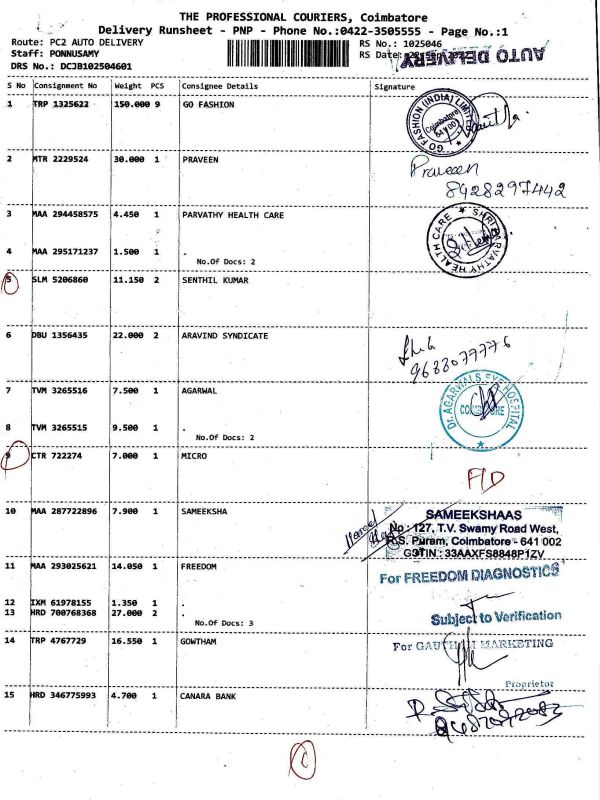 THE PROFESSIONAL COURIERS, Coimbatore
Delivery Runsheet - PNP - Phone No.:0422-3505555 - Page No.:1
Route: PC2 AUTO DELIVERY RS No.: 1025046
Staff: PONNUSAMY RS Date:
AUTO DELIVERY
DRS No.: DCJB102504601
S No Consignment No Weight PCS Consignee Details Signature
1 TRP 1325622 150.000 9 GO FASHION
GO FASHION (INDIA) LIMITED
Coimbatore
2 MTR 2229524 30.000 1 PRAVEEN
Praveen
8428297442
3 MAA 294458575 4.450 1 PARVATHY HEALTH CARE
SHRI PARVATHY HEALTH CARE
4 MAA 295171237 1.500 1 .
No.Of Docs: 2
5 SLM 5206860 11.150 2 SENTHIL KUMAR
6 DBU 1356435 22.000 2 ARAVIND SYNDICATE
9688077776
7 TVM 3265516 7.500 1 AGARWAL
Dr. AGARWALS EYE HOSPITAL
COIMBATORE
8 TVM 3265515 9.500 1 .
No.Of Docs: 2
9 CTR 722274 7.000 1 MICRO
F/D
10 MAA 287722896 7.900 1 SAMEEKSHA
SAMEEKSHAAS
No : 127, T.V. Swamy Road West,
R.S. Puram, Coimbatore - 641 002
GSTIN : 33AAXFS8848P1ZV
11 MAA 293025621 14.050 1 FREEDOM
For FREEDOM DIAGNOSTICS
12 IXM 61978155 1.350 1 .
13 HRD 700768368 27.000 2
Subject to Verification
No.Of Docs: 3
14 TRP 4767729 16.550 1 GOWTHAM
For GAUTHAM MARKETING
Proprietor
15 HRD 346775993 4.700 1 CANARA BANK